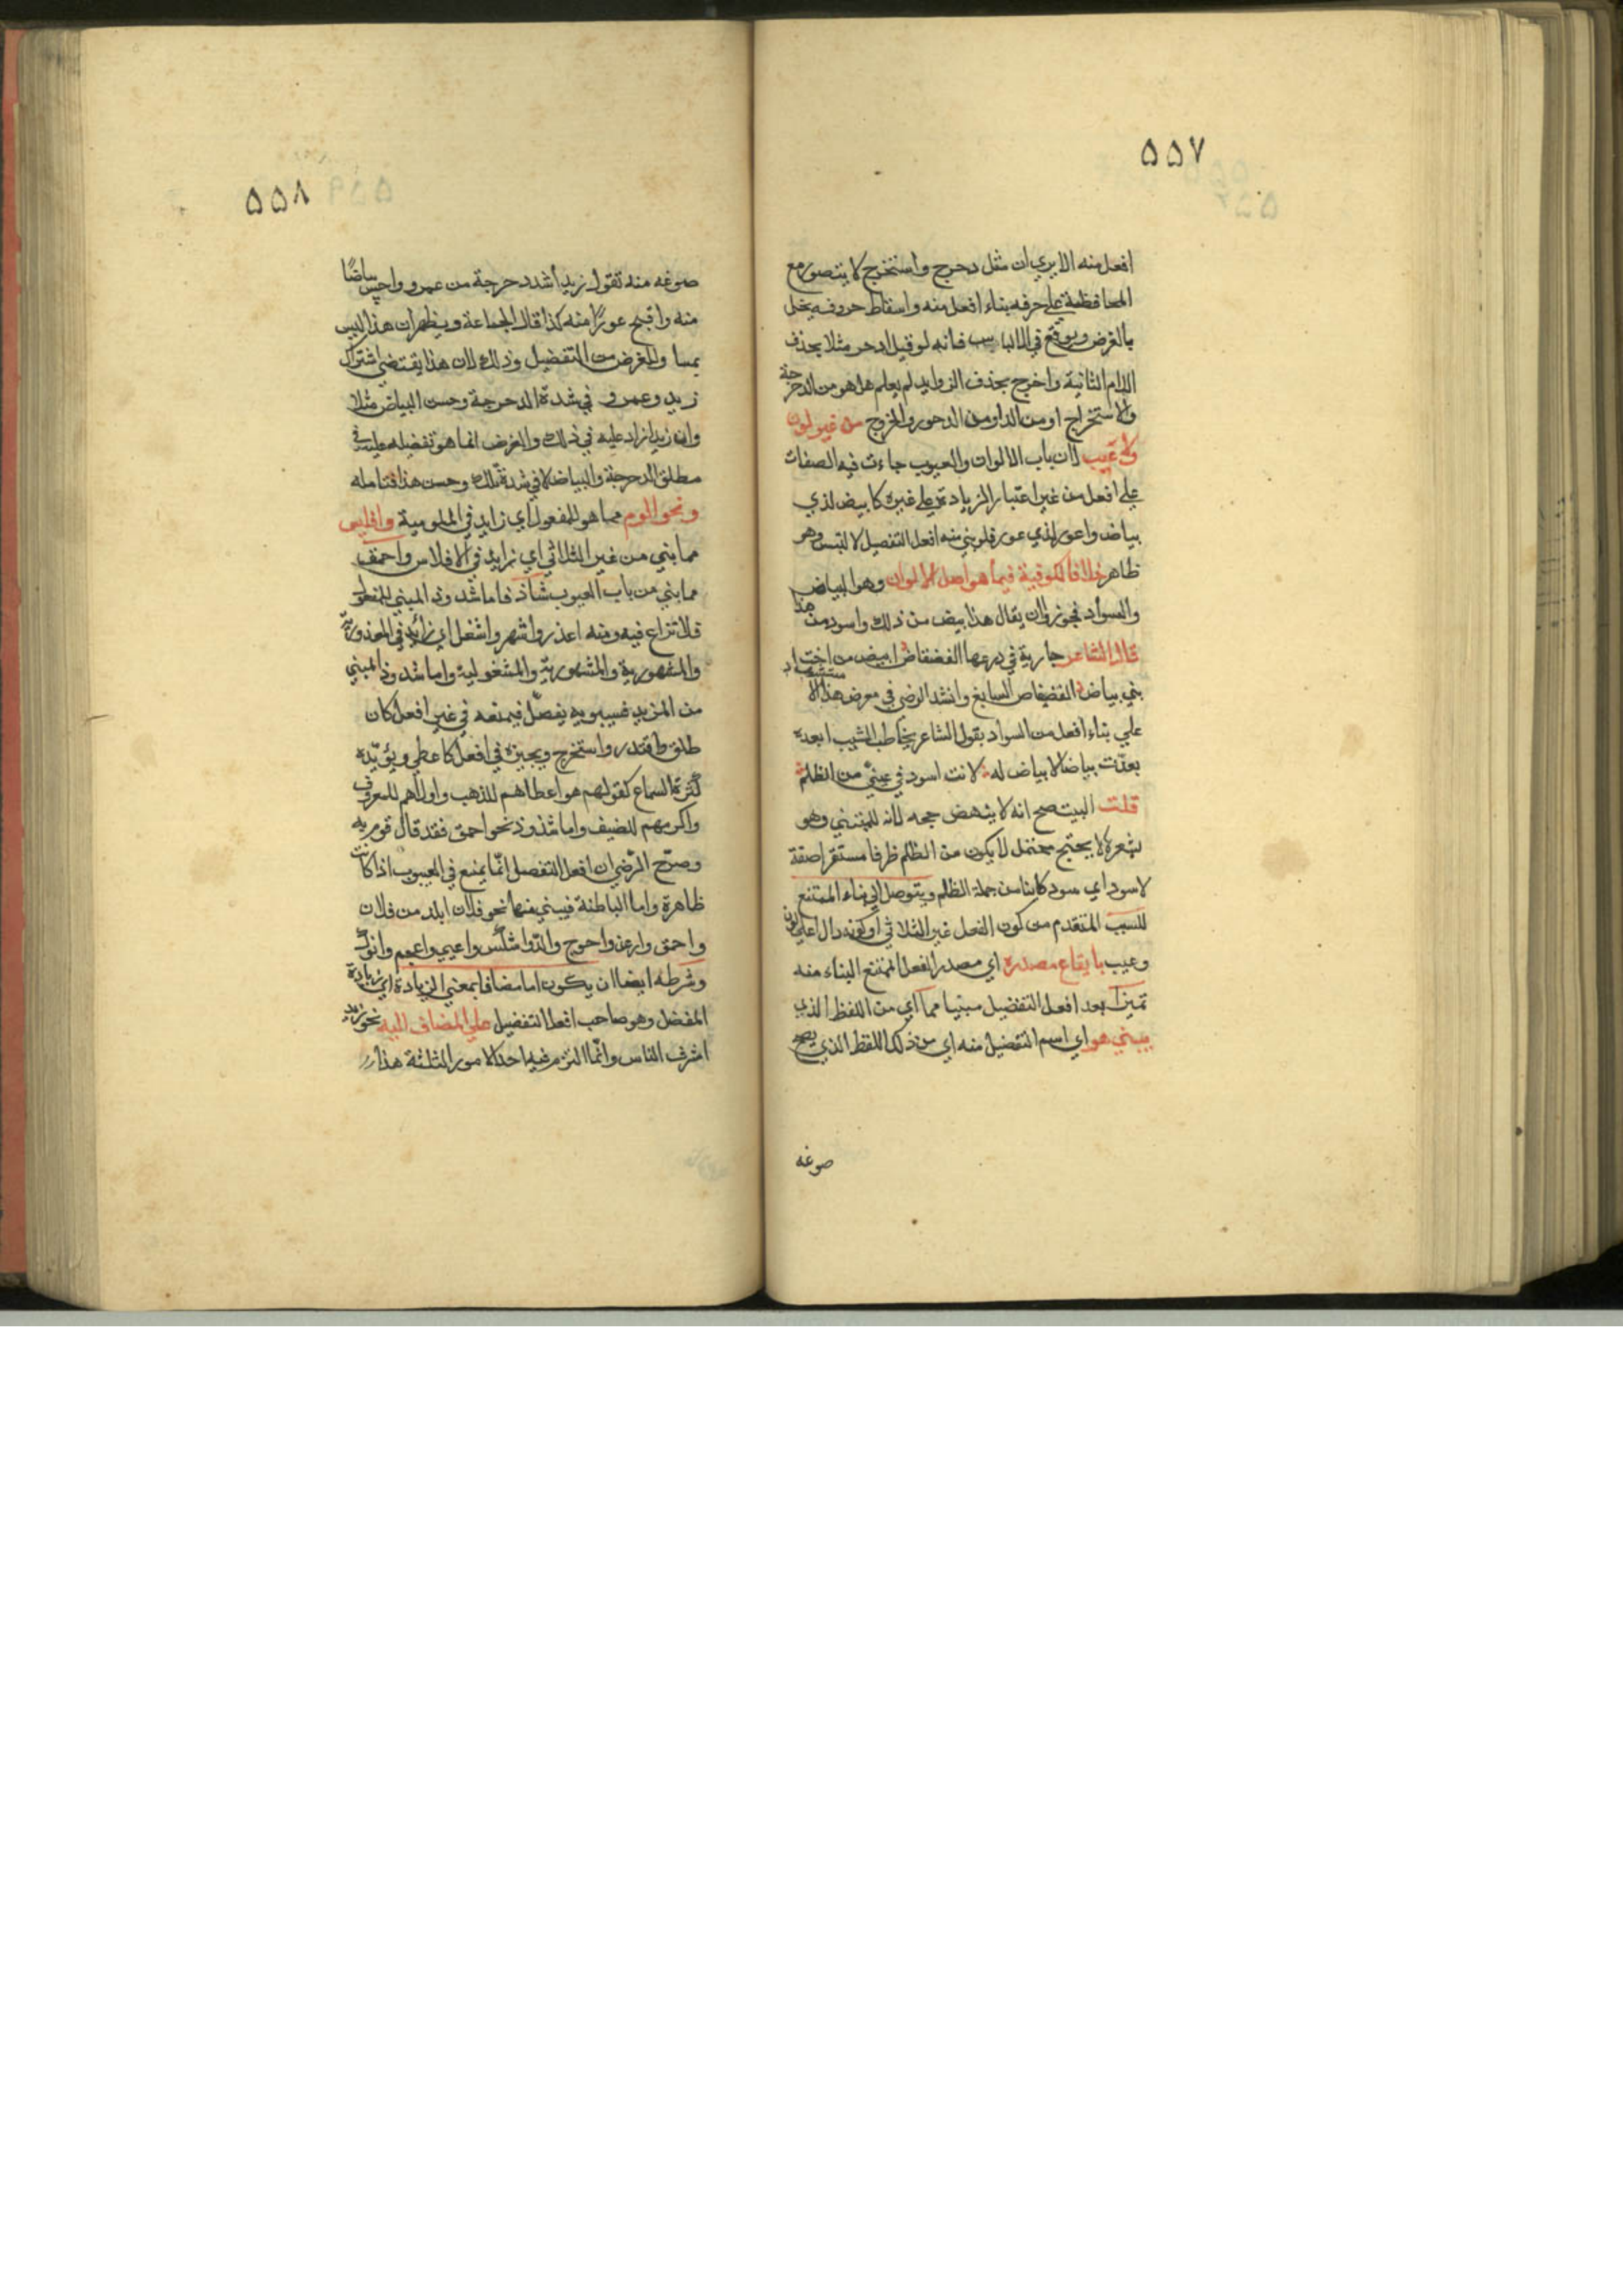 ٥٥٧
افعل منه الا يري ان مثل دحرج واستخرج لا يتصور مع
المحافظة علي حرفه بناء افعل منه واسقاط حروفه يخل
بالغرض ويوقع في الالباس فانه لو قيل ادحر مثلا بحذف
اللام الثانية واخرج بحذف الزوايد لم يعلم هل هو من الدحرجة
والاستخراج او من الدحور والخروج من غير لون
ولا عيب لان باب الالوان والعيوب جاءت فيه الصفات
علي افعل من غير اعتبار الزيادة علي غيره كابيض لذي
بياض واعور لذي عور فلو بني منه افعل التفضيل لالتبس وهو
ظاهر خلافا للكوفية فيما هو اصل الالوان وهو البياض
والسواد فجوزوا ان يقال هذا ابيض من ذلك واسود من هذا
قال الشاعر جارية في درعها الفضفاض ابيض من اخت
بني بياض الفضفاض السابغ وانشد الرضي في معرض هذا الاستشهاد
علي بناء افعل من السواد بقول الشاعر يخاطب الشيب ابعده
بعدت بياضا لا بياض له لانت اسود في عيني من الظلم
قلت البيت صح انه لا ينهض حجه لانه للمتنبي وهو
بشعره لا يحتج محتمل لا يكون من الظلم ظرفا مستقرا صفة
لاسود اي سود كاينا من جملة الظلم ويتوصل الي بناء الممتنع
للسبب المتقدم من كون الفعل غير الثلاثي او كونه دال اعلي لون
وعيب بايقاع مصدره اي مصدر الفعل الممتنع البناء منه
تميزا بعد افعل التفضيل مبنيا مما اي من اللفظ الذي
يبني هو اي اسم التفضيل منه اي من ذلك اللفظ الذي يصح
صوغه
٥٥٨
صوغه منه تقول زيد اشد دحرجة من عمرو واحسن بياضًا
منه واقبح عورًا منه كذا قال الجماعة ويظهر ان هذا ليس
بمساو للغرض من التفضيل وذلك لان هذا يقتضي اشتراك
زيد وعمرو في شدة الدحرجة وحسن البياض مثلا
وان زيدا زاد عليه في ذلك والغرض انما هو تفضيله عليه في
مطلق الدحرجة والبياض لا في شدة تلك وحسن هذا فتامله
ونحو الوم مما هو للمفعول اي زايد في الملومية وافليس
مما بني من غير الثلاثي اي زايد في الافلاس واحمق
مما بني من باب العيوب شاذ فاما شذوذ المبني للمفعول
فلا نزاع فيه ومنه اعذر واشهر واشغل اي زائد في المعذورية
والمشهورية والمشغولية واما شذوذ المبني
من المزيد فسيبويه يفصل فيمنعه في غير افعل كان
طلق واقتدر واستخرج ويجيزه في افعل كاعطي ويؤيّده
كثرة السماع كقولهم هو اعطاهم للذهب واولاهم للمعروف
واكرمهم للضيف واما شذوذ نحو احمق فقد قال قوم به
وصرّح الرّضي ان افعل التفضيل انّما يمنع في العيوب اذا كانت
ظاهرة واما الباطنة فيبني منها نحو فلان ابلد من فلان
واحمق وارعن واحوج والدّ واشكس واعيي واعجم وانوك
وشرطه ايضا ان يكون اما مضافا بمعني الزيادة اي زيادة
المفضل وهو صاحب افعل التفضيل علي المضاف اليه نحو زيد
اشرف الناس وانّما التزم فيه احد الامور الثلثة هذا